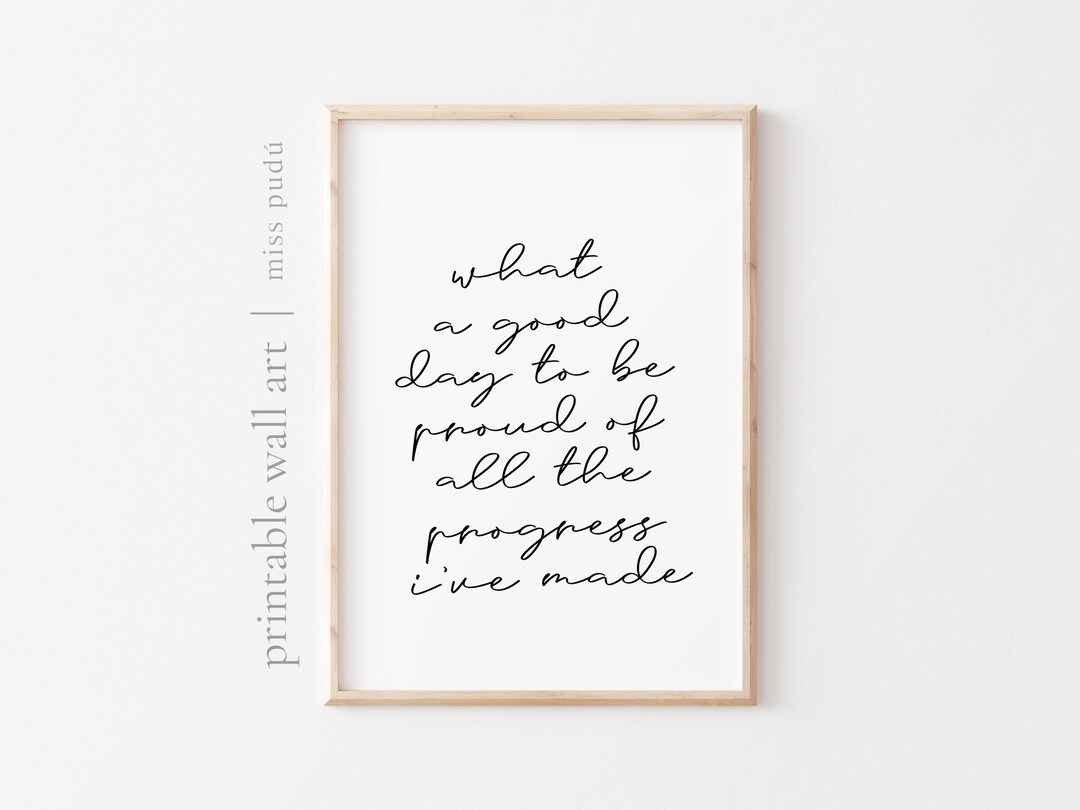 what
a good
day to be
proud of
all the
progress
i've made
printable wall art | miss pudú